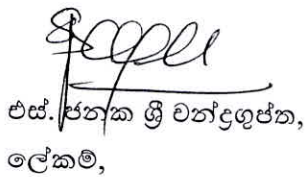 එස්. ජනක ශ්‍රී චන්ද්‍රගුප්ත,
ලේකම්,